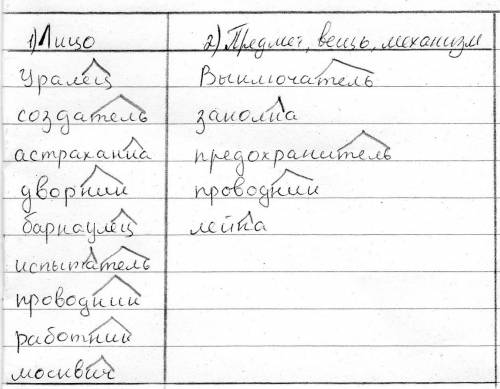 1) Лицо
Уралец
создатель
астраханка
дворник
барнаулец
испытатель
проводник
работник
москвич
2) Предмет, вещь, механизм
Выключатель
заколка
предохранитель
проводник
лейка